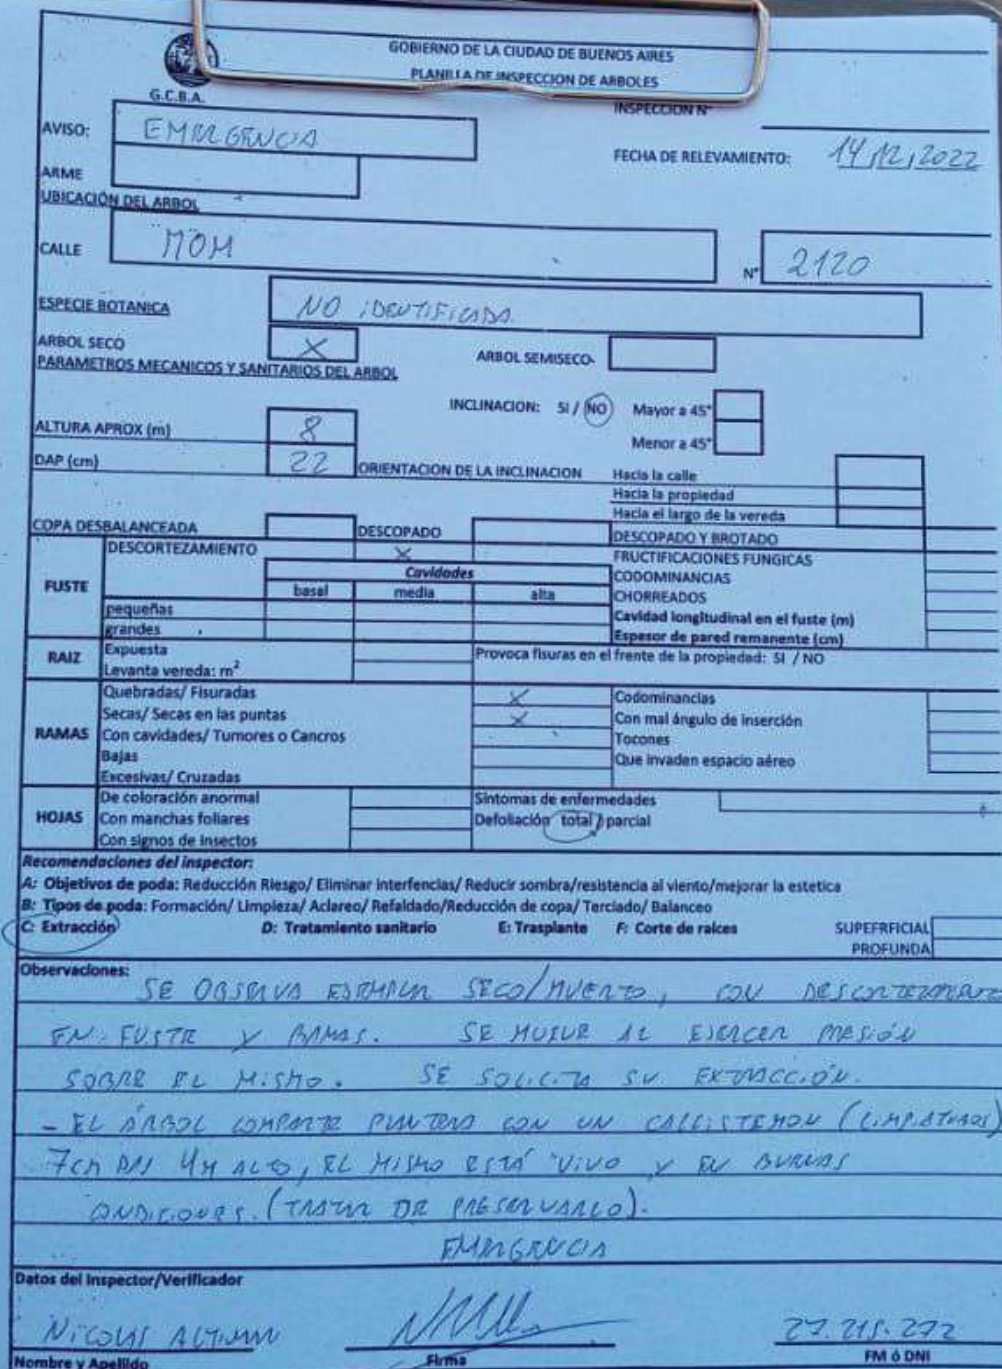 GOBIERNO DE LA CIUDAD DE BUENOS AIRES
PLANILLA DE INSPECCION DE ARBOLES
G.C.B.A.
INSPECCION N°
AVISO: EMERGENCIA
FECHA DE RELEVAMIENTO: 14/12/2022
ARME
UBICACIÓN DEL ARBOL
CALLE MOM N° 2120
ESPECIE BOTANICA NO IDENTIFICADA
ARBOL SECO X ARBOL SEMISECO
PARAMETROS MECANICOS Y SANITARIOS DEL ARBOL
INCLINACION: SI / NO Mayor a 45°
ALTURA APROX (m) 8 Menor a 45°
DAP (cm) 22 ORIENTACION DE LA INCLINACION Hacia la calle
Hacia la propiedad
Hacia el largo de la vereda
COPA DESBALANCEADA DESCOPADO DESCOPADO Y BROTADO
DESCORTEZAMIENTO X FRUCTIFICACIONES FUNGICAS
Cavidades CODOMINANCIAS
FUSTE basal media alta CHORREADOS
pequeñas Cavidad longitudinal en el fuste (m)
grandes Espesor de pared remanente (cm)
RAIZ Expuesta Provoca fisuras en el frente de la propiedad: SI / NO
Levanta vereda: m²
Quebradas/ Fisuradas X Codominancias
Secas/ Secas en las puntas X Con mal ángulo de inserción
RAMAS Con cavidades/ Tumores o Cancros Tocones
Bajas Que invaden espacio aéreo
Excesivas/ Cruzadas
De coloración anormal Sintomas de enfermedades
HOJAS Con manchas foliares Defoliación total / parcial
Con signos de insectos
Recomendaciones del inspector:
A: Objetivos de poda: Reducción Riesgo/ Eliminar interfencias/ Reducir sombra/resistencia al viento/mejorar la estetica
B: Tipos de poda: Formación/ Limpieza/ Aclareo/ Refaldado/Reducción de copa/ Terciado/ Balanceo
C: Extracción D: Tratamiento sanitario E: Trasplante F: Corte de raices SUPERFRFICIAL
PROFUNDA
Observaciones:
SE OBSERVA EJEMPLAR SECO/MUERTO, CON DESCORTEZAMIENTO
EN FUSTE Y RAMAS. SE MUEVE AL EJERCER PRESIÓN
SOBRE EL MISMO. SE SOLICITA SU EXTRACCIÓN.
- EL ÁRBOL COMPARTE PLANTERA CON UN CALLISTEMON (LIMPIATUBOS)
7cm DAP 4M ALTO, EL MISMO ESTÁ VIVO Y EN BUENAS
CONDICIONES. (TRATAR DE PRESERVARLO).
EMERGENCIA
Datos del Inspector/Verificador
NICOLAS 27.215.272
Nombre y Apellido Firma FM ó DNI